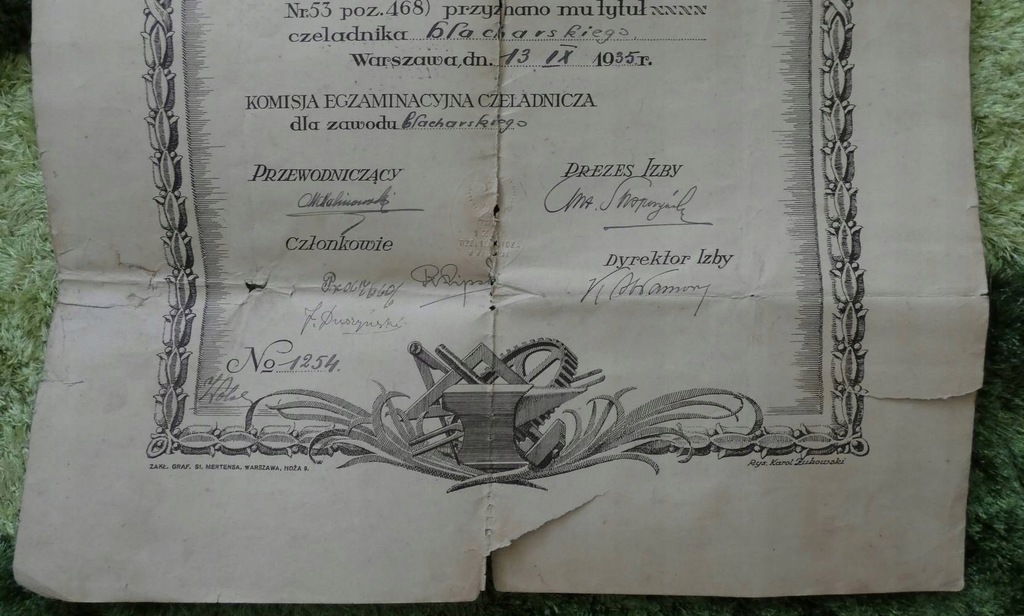 Nr.53 poz. 468) przyznano mu tytuł xxxx
czeladnika blacharskiego
Warszawa, dn. 13 IX 1935r.
KOMISJA EGZAMINACYJNA CZELADNICZA
dla zawodu blacharskiego
PRZEWODNICZĄCY PREZES IZBY
MKalinowski
Członkowie Dyrektor Izby
J. Duszyński
No 1254.
ZAKŁ. GRAF. ST. MERTENSA, WARSZAWA, HOŻA 9. Rys. Karol Żukowski